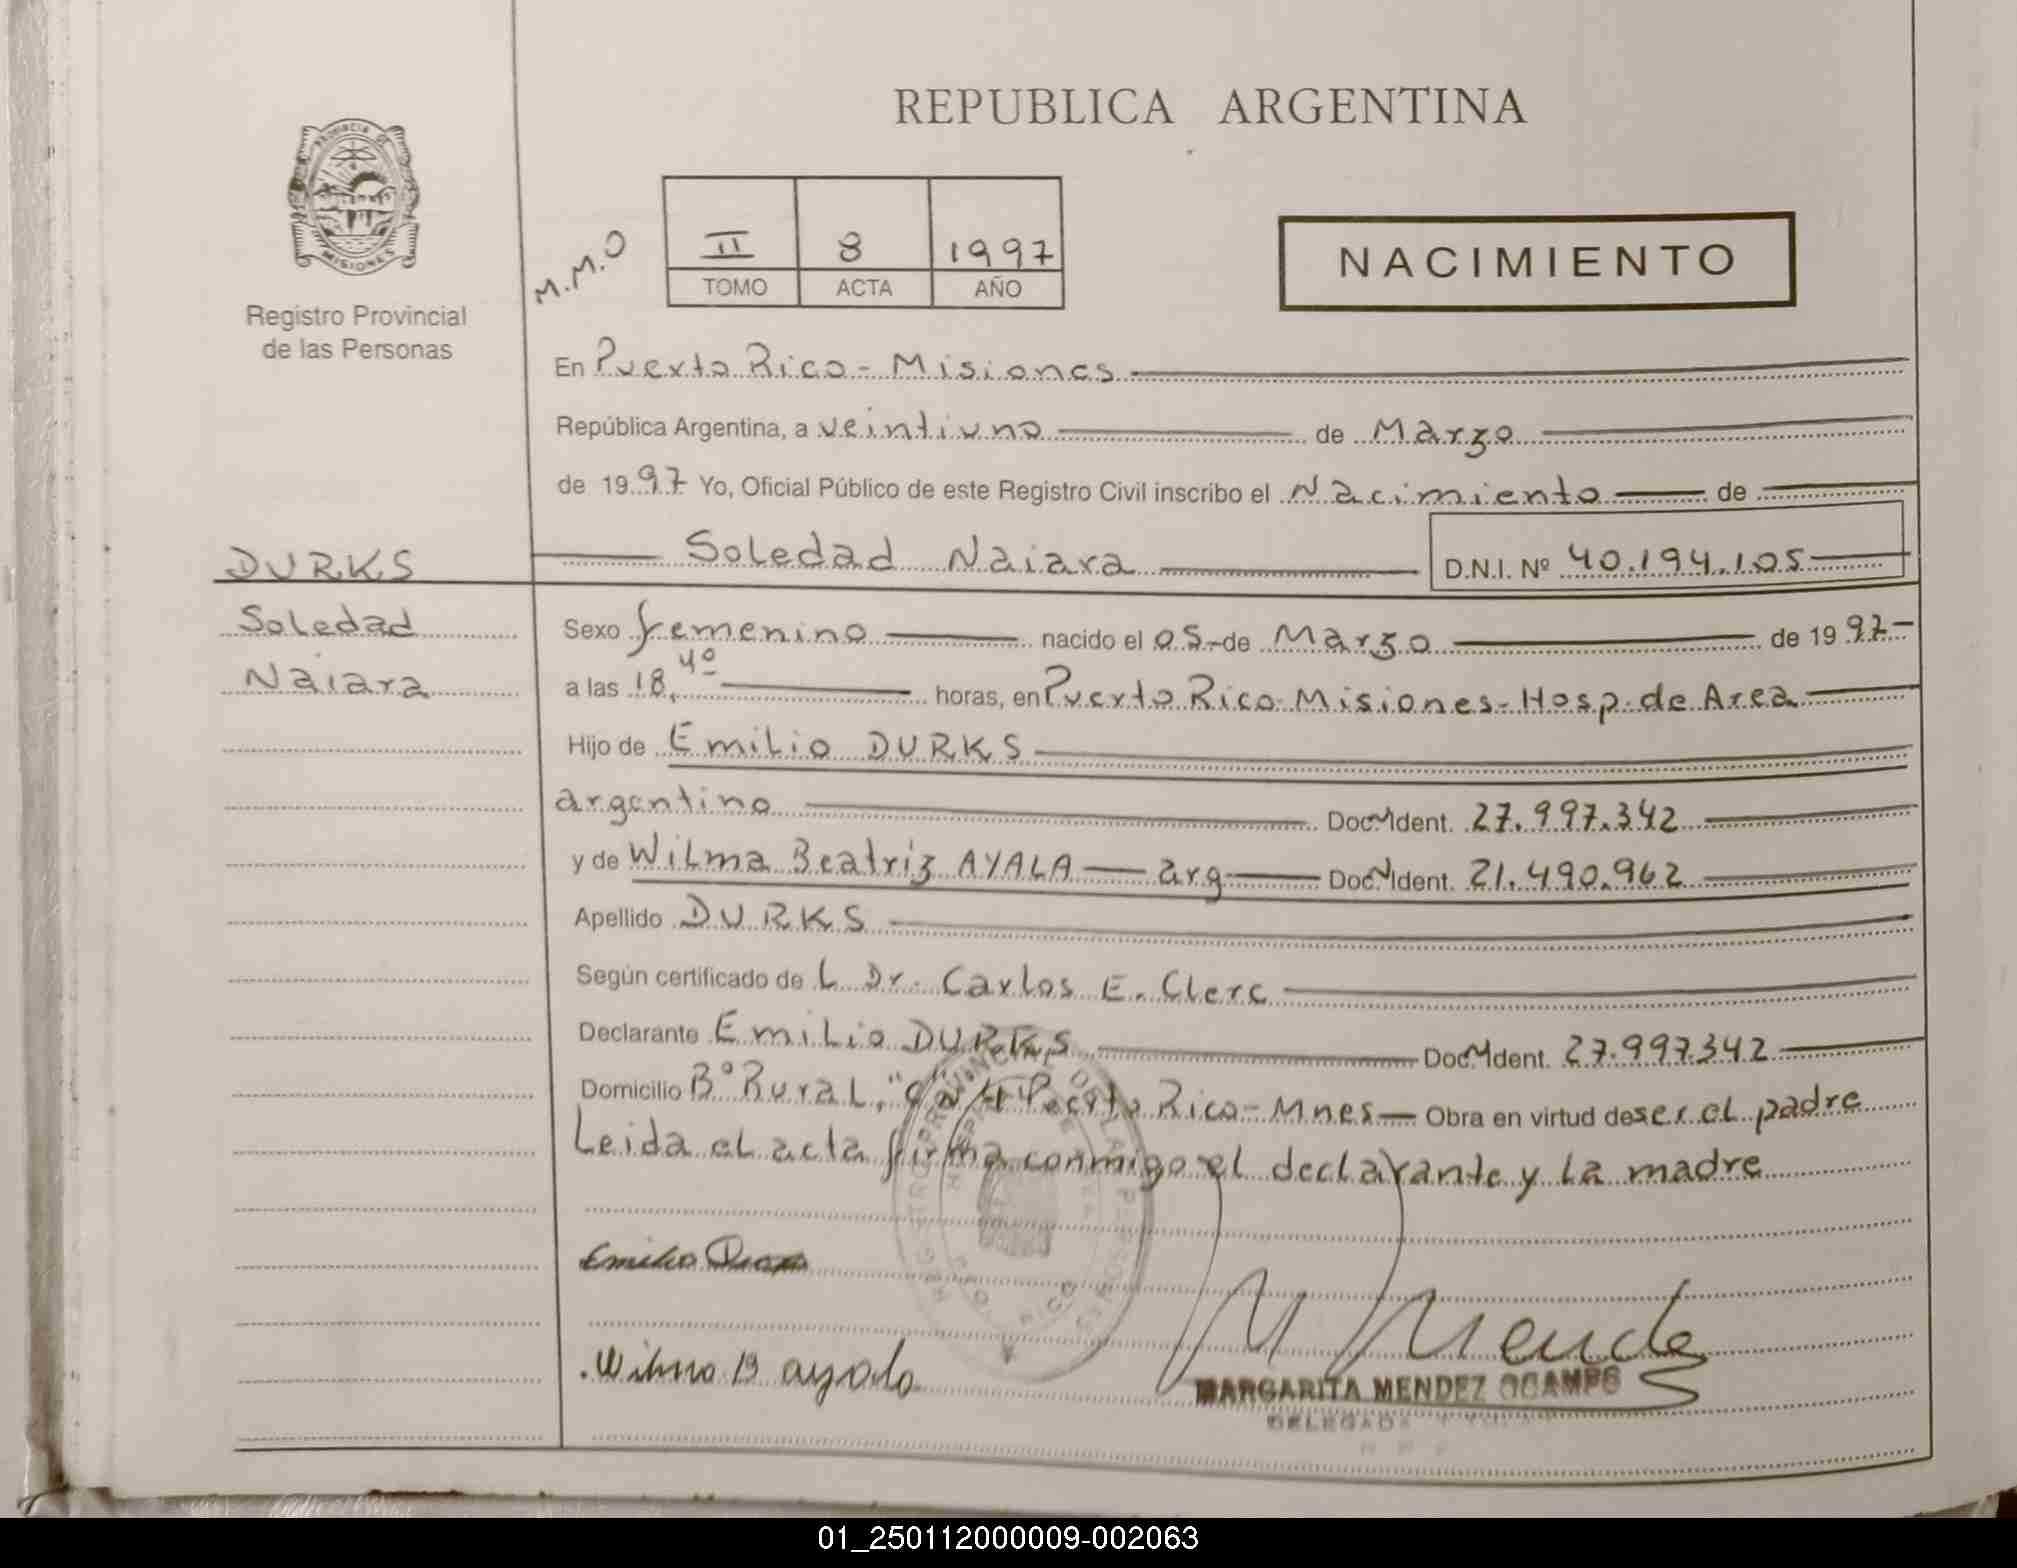 REPUBLICA ARGENTINA
PROVINCIA DE MISIONES
Registro Provincial
de las Personas
M.M.O
II 8 1997
TOMO ACTA AÑO
NACIMIENTO
En Puerto Rico - Misiones
República Argentina, a veintiuno de Marzo
de 1997 Yo, Oficial Público de este Registro Civil inscribo el Nacimiento de
DURKS
Soledad
Naiara
Soledad Naiara D.N.I. Nº 40.194.105
Sexo femenino nacido el 05 de Marzo de 1997
a las 18,40 horas, en Puerto Rico Misiones - Hosp. de Area
Hijo de Emilio DURKS
argentino Doc. Ident. 27.997.342
y de Wilma Beatriz AYALA — arg Doc. Ident. 21.490.962
Apellido DURKS
Según certificado de L Dr. Carlos E. Clerc
Declarante Emilio DURKS Doc. Ident. 27.997.342
Domicilio Bº Rural, Puerto Rico - Mnes — Obra en virtud de ser el padre
Leida el acta firma conmigo el declarante y la madre
Emilio
Wilma B ayala
M Mende
MARGARITA MENDEZ OCAMPO
DELEGADA
01_250112000009-002063